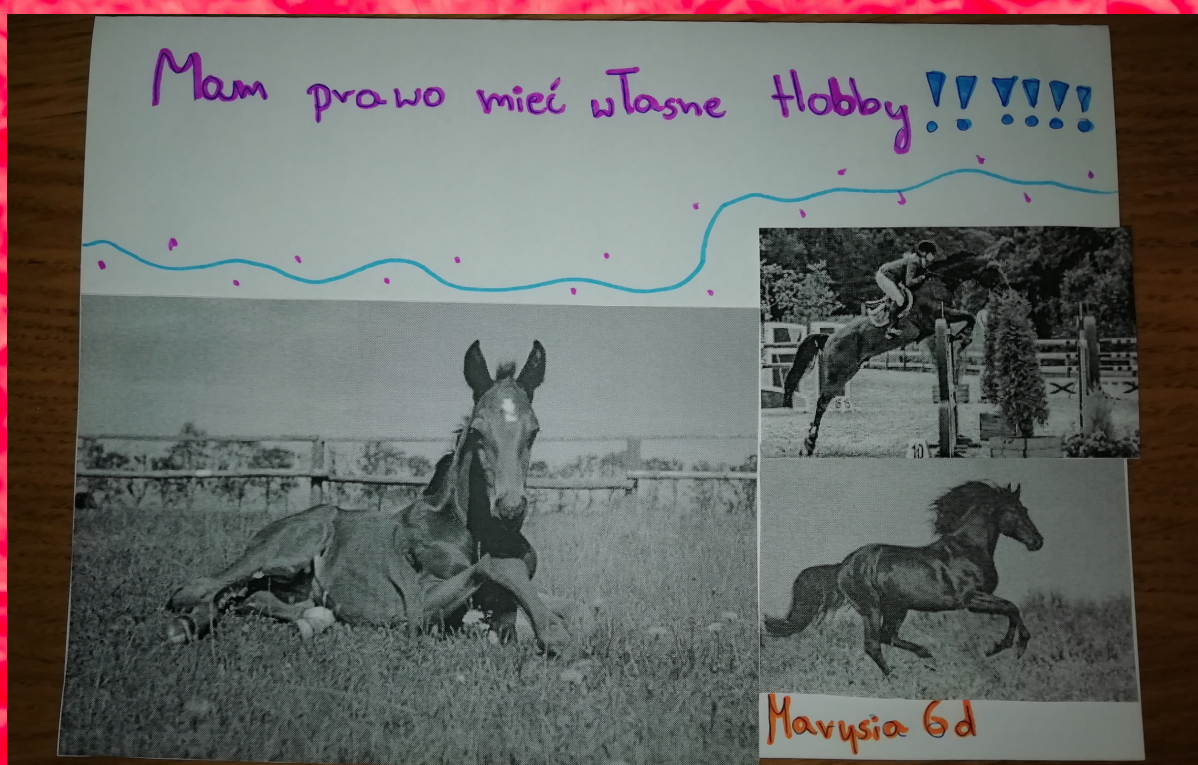 Mam prawo mieć własne Hobby!!!!!!
Marysia 6d